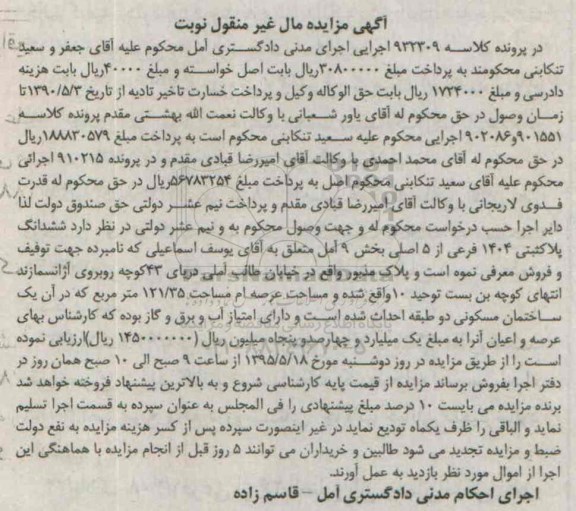 آگهی مزایده مال غیر منقول نوبت
در پرونده کلاسه ۹۳۲۳۰۹ اجرایی اجرای مدنی دادگستری آمل محکوم علیه آقای جعفر و سعید
تنکابنی محکومند به پرداخت مبلغ ۳۰۸۰۰۰۰۰ریال بابت اصل خواسته و مبلغ ۴۰۰۰۰ریال بابت هزینه
دادرسی و مبلغ ۱۷۲۴۰۰۰ ریال بابت حق الوکاله وکیل و پرداخت خسارت تاخیر تادیه از تاریخ ۱۳۹۰/۵/۳تا
زمان وصول در حق محکوم له آقای یاور شعبانی با وکالت نعمت الله بهشتی مقدم پرونده کلاسه
۹۰۱۵۵۱و۹۰۲۰۸۶ اجرایی محکوم علیه سعید تنکابنی محکوم است به پرداخت مبلغ ۱۸۸۸۳۰۵۷۹ریال
در حق محکوم له آقای محمد احمدی با وکالت آقای امیررضا قبادی مقدم و در پرونده ۹۱۰۲۱۵ اجرائی
محکوم علیه آقای سعید تنکابنی محکوم اصل به پرداخت مبلغ ۵۶۷۸۳۲۵۴ریال در حق محکوم له قدرت
فدوی لاریجانی با وکالت آقای امیررضا قبادی مقدم و پرداخت نیم عشر دولتی حق صندوق دولت لذا
دایر اجرا حسب درخواست محکوم له و جهت وصول محکوم به و نیم عشر دولتی در نظر دارد ششدانگ
پلاکثبتی ۱۴۰۴ فرعی از ۵ اصلی بخش ۹ آمل متعلق به آقای یوسف اسماعیلی که نامبرده جهت توقیف
و فروش معرفی نموه است و پلاک مذبور واقع در خیابان طالب آملی دریای ۴۳کوچه روبروی آژانسمازند
انتهای کوچه بن بست توحید ۱۰واقع شده و مساحت عرصه ام مساحت ۱۲۱/۳۵ متر مربع که در آن یک
ساختمان مسکونی دو طبقه احداث شده است و دارای امتیاز آب و برق و گاز بوده که کارشناس بهای
عرصه و اعیان آنرا به مبلغ یک میلیارد و چهارصدو پنجاه میلیون ریال (۱۴۵۰۰۰۰۰۰۰ ریال)ارزیابی نموده
است را از طریق مزایده در روز دوشنبه مورخ ۱۳۹۵/۵/۱۸ از ساعت ۹ صبح الی ۱۰ صبح همان روز در
دفتر اجرا بفروش برساند مزایده از قیمت پایه کارشناسی شروع و به بالاترین پیشنهاد فروخته خواهد شد
برنده مزایده می بایست ۱۰ درصد مبلغ پیشنهادی را فی المجلس به عنوان سپرده به قسمت اجرا تسلیم
نماید و الباقی را ظرف یکماه تودیع نماید در غیر اینصورت سپرده پس از کسر هزینه مزایده به نفع دولت
ضبط و مزایده تجدید می شود طالبین و خریداران می توانند ۵ روز قبل از انجام مزایده با هماهنگی این
اجرا از اموال مورد نظر بازدید به عمل آورند.
اجرای احکام مدنی دادگستری آمل – قاسم زاده